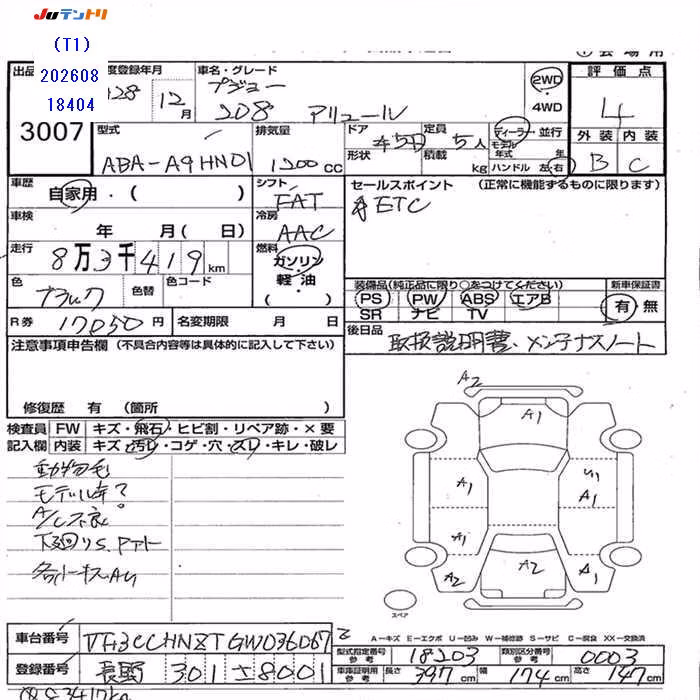 Juテントリ
(T1)
202608
18404
出品
3007
度登録年月
車名・グレード
プジョー
2WD
4WD
評価点
4
H28 12月
208 アリュール
外装 内装
B C
型式
排気量
ドア
定員
ABA-A9HN01
1200cc
5D
5人
形状
積載
kg
ディーラー・並行
モデル年式 年
ハンドル 左・右
車歴
自家用・( )
シフト
FAT
セールスポイント (正常に機能するものに限ります)
ETC
車検
年 月( 日)
冷房
AAC
走行
8万3千419km
燃料
ガソリン
軽油
( )
色
ブラック
色替
色コード
装備品(純正品に限り○をつけてください)
PS PW ABS エアB
SR ナビ TV
新車保証書
有・無
R券
17050円
名変期限 月 日
後日品
取扱説明書・メンテナンスノート
注意事項申告欄(不具合内容等は具体的に記入して下さい)
修復歴 有 (箇所 )
検査員
記入欄
FW キズ・飛石・ヒビ割・リペア跡・×要
内装 キズ・汚レ・コゲ・穴・スレ・キレ・破レ
動物毛
モデル年?
A/C不良
A2
A1
A1
A1
A1
A2
A2
A1
スペア
A-キズ E-エクボ U-凹み W-補修跡 S-サビ C-腐食 XX-交換済
車台番号
VF3CCHNZTGW036067
登録番号
長野 301 8001
型式指定番号
参考
18203
類別区分番号
参考
0003
車庫証明用
参考
長さ 397cm
幅 174cm
高さ 147cm